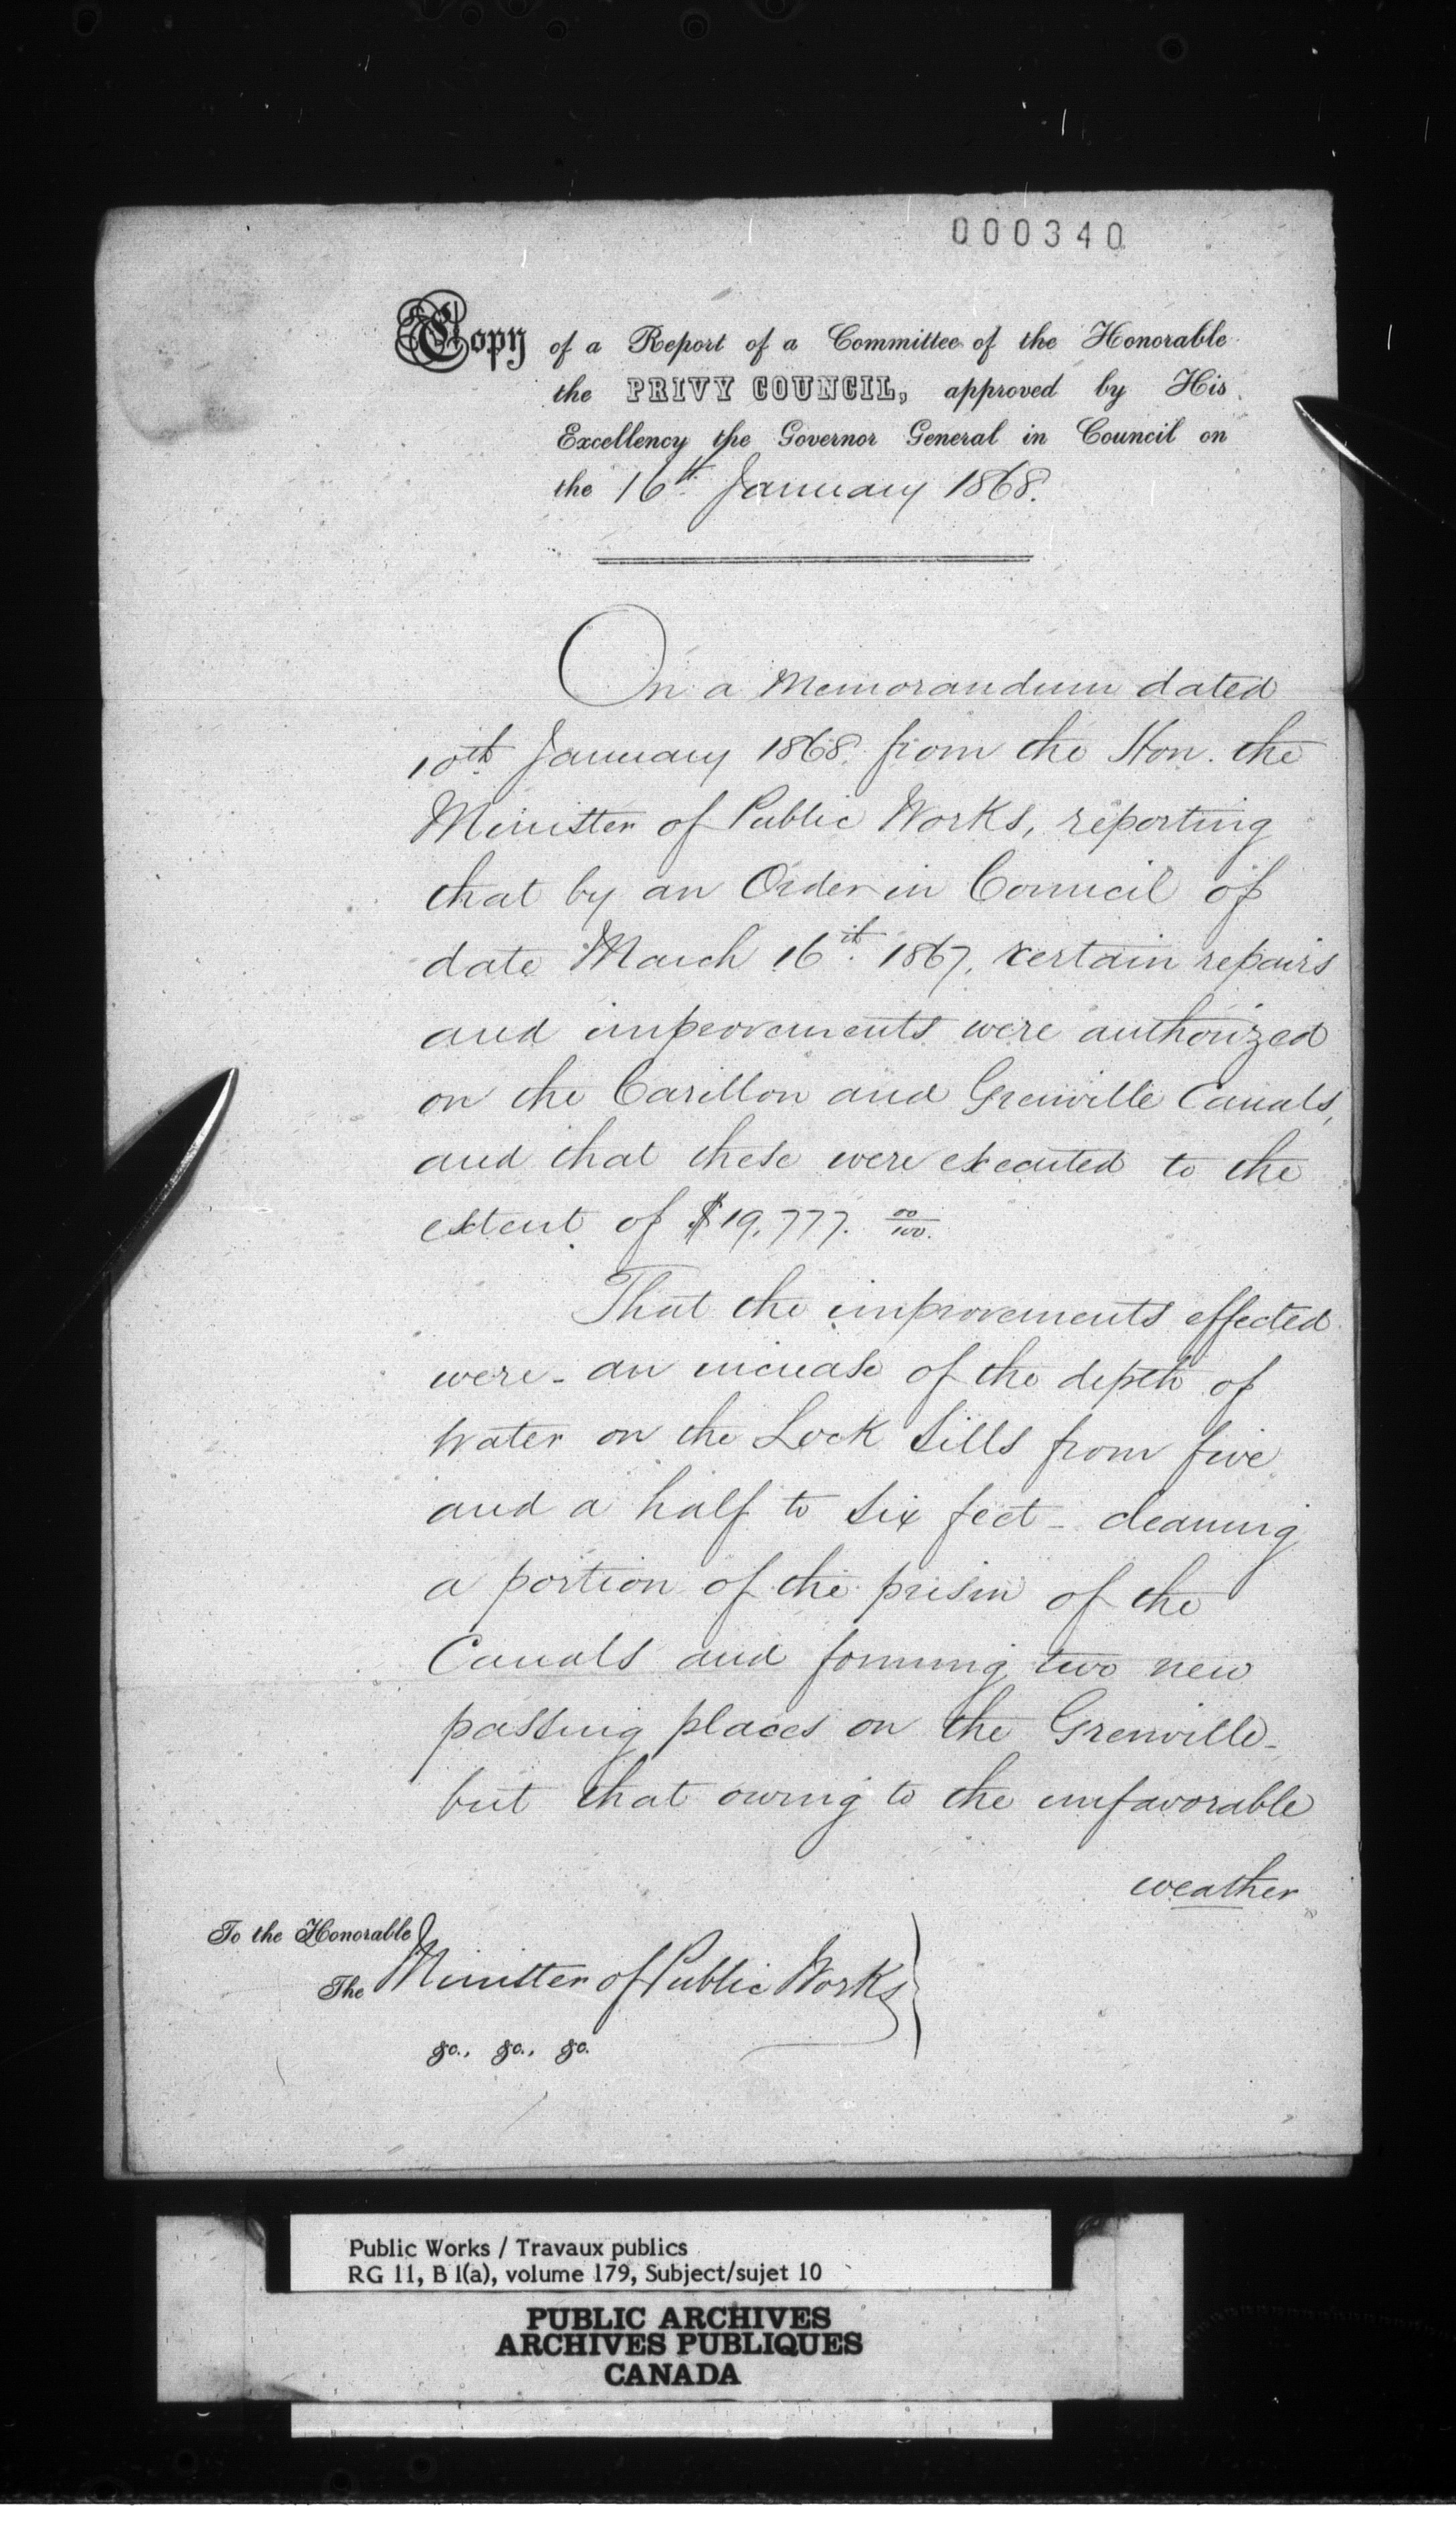 000340
Copy of a Report of a Committee of the Honorable
the PRIVY COUNCIL, approved by His
Excellency the Governor General in Council on
the 16th January 1868.
On a Memorandum dated
10th January 1868 from the Hon. the
Minister of Public Works, reporting
that by an Order in Council of
date March 16th 1867, certain repairs
and improvements were authorized
on the Carillon and Grenville Canals,
and that these were executed to the
extent of $19,777. 00/100.
That the improvements effected
were - an increase of the depth of
Water on the Lock Sills from five
and a half to six feet - cleaning
a portion of the prism of the
Canals and forming two new
passing places on the Grenville -
but that owing to the unfavorable
weather
To the Honorable
The Minister of Public Works
&c., &c., &c.
Public Works / Travaux publics
RG 11, B 1(a), volume 179, Subject/sujet 10
PUBLIC ARCHIVES
ARCHIVES PUBLIQUES
CANADA